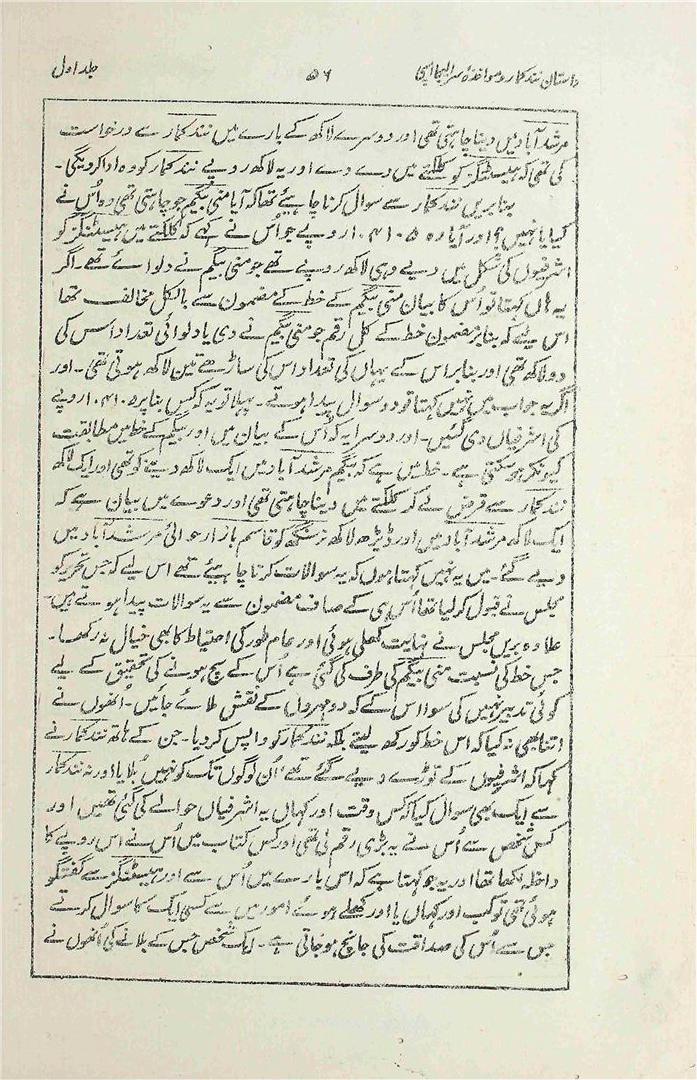 جلد اول ۵۶ داستان نندکمار و مواخذۂ سر الیجا ایمپی
مرشد آباد میں دینا چاہتی تھی اور دوسرے لاکھ کے بارے میں نندکمار سے درخواست
کی تھی کہ ہیسٹنگز کو کلکتے میں دے دے اور یہ لاکھ روپے نندکمار کو وہ ادا کر دیگی۔
بنابریں نندکمار سے سوال کرنا چاہیے تھا کہ آیا منی بیگم جو چاہتی تھی وہ اُس نے
کیا یا نہیں؟ اور آیا وہ ۱۰۴۱۰۵ روپے جو اُس نے کہے کہ کلکتے میں ہیسٹنگز کو
اشرفیوں کی شکل میں دیے وہی لاکھ روپے تھے جو منی بیگم نے دلوائے تھے۔ اگر
یہ ہاں کہتا تو اُس کا بیان منی بیگم کے خط کے مضمون سے بالکل مخالف تھا
اس لیے کہ بنابر مضمون خط کے کل رقم جو منی بیگم نے دی یا دلوائی تعداد اس کی
دو لاکھ تھی اور بنابر اس کے یہاں کی تعداد اس کی ساڑھے تین لاکھ ہوتی تھی۔ اور
اگر یہ جواب میں نہیں کہتا تو دو سوال پیدا ہوتے۔ پہلا تو یہ کہ کس بنا پر ۱۰۴۱۰۵ روپے
کی اشرفیاں دی گئیں۔ اور دوسرا یہ کہ اُس کے بیان میں اور بیگم کے خط میں مطابقت
کیونکر ہو سکتی ہے۔ خط میں ہے کہ بیگم مرشد آباد میں ایک لاکھ دینے کو تھی اور ایک لاکھ
نندکمار سے قرض لے کر کلکتے میں دینا چاہتی تھی اور دعوے میں بیان ہے کہ
ایک لاکھ مرشد آباد میں اور ڈیڑھ لاکھ نرسنگھ کو قاسم بازار حوالئ مرشد آباد میں
دیے گئے۔ میں یہ نہیں کہتا ہوں کہ یہ سوالات کرنا چاہیئے تھے اس لیے کہ جس تحریر کو
مجلس نے قبول کر لیا تھا اُس ہی کے صاف مضمون سے یہ سوالات پیدا ہوتے ہیں۔
علاوہ بریں مجلس نے نہایت کھلی ہوئی اور عام طور کی احتیاط کا بھی خیال نہ رکھا۔
جس خط کی نسبت منی بیگم کی طرف کی گئی ہے اُس کے سچ ہونے کی تحقیق کے لیے
کوئی تدبیر نہیں کی سوا اس کے کہ دو مہروں کے نقش ملائے جائیں۔ اُنھوں نے
اتنا بھی نہ کیا کہ اس خط کو رکھ لیتے بلکہ نندکمار کو واپس کر دیا۔ جن کے ہاتھ نندکمار نے
کہا کہ اشرفیوں کے توڑے دیے گئے تھے اُن لوگوں تک کو نہیں بُلایا اور نہ نندکمار
سے ایک بھی سوال کیا کہ کس وقت اور کہاں یہ اشرفیاں حوالے کی گئی تھیں اور
کس شخص سے اُس نے یہ بڑی رقم لی تھی اور کس کتاب میں اُس نے اس روپے کا
داخلہ لکھا تھا اور یہ جو کہتا ہے کہ اس بارے میں اُس سے اور ہیسٹنگز سے گفتگو
ہوئی تھی تو کب اور کہاں یا اور کھلے ہوئے امور میں سے کسی ایک کا سوال کرتے
جس سے اُس کی صداقت کی جانچ ہو جاتی ہے۔ ایک شخص جس کے بلانے کی اُنھوں نے